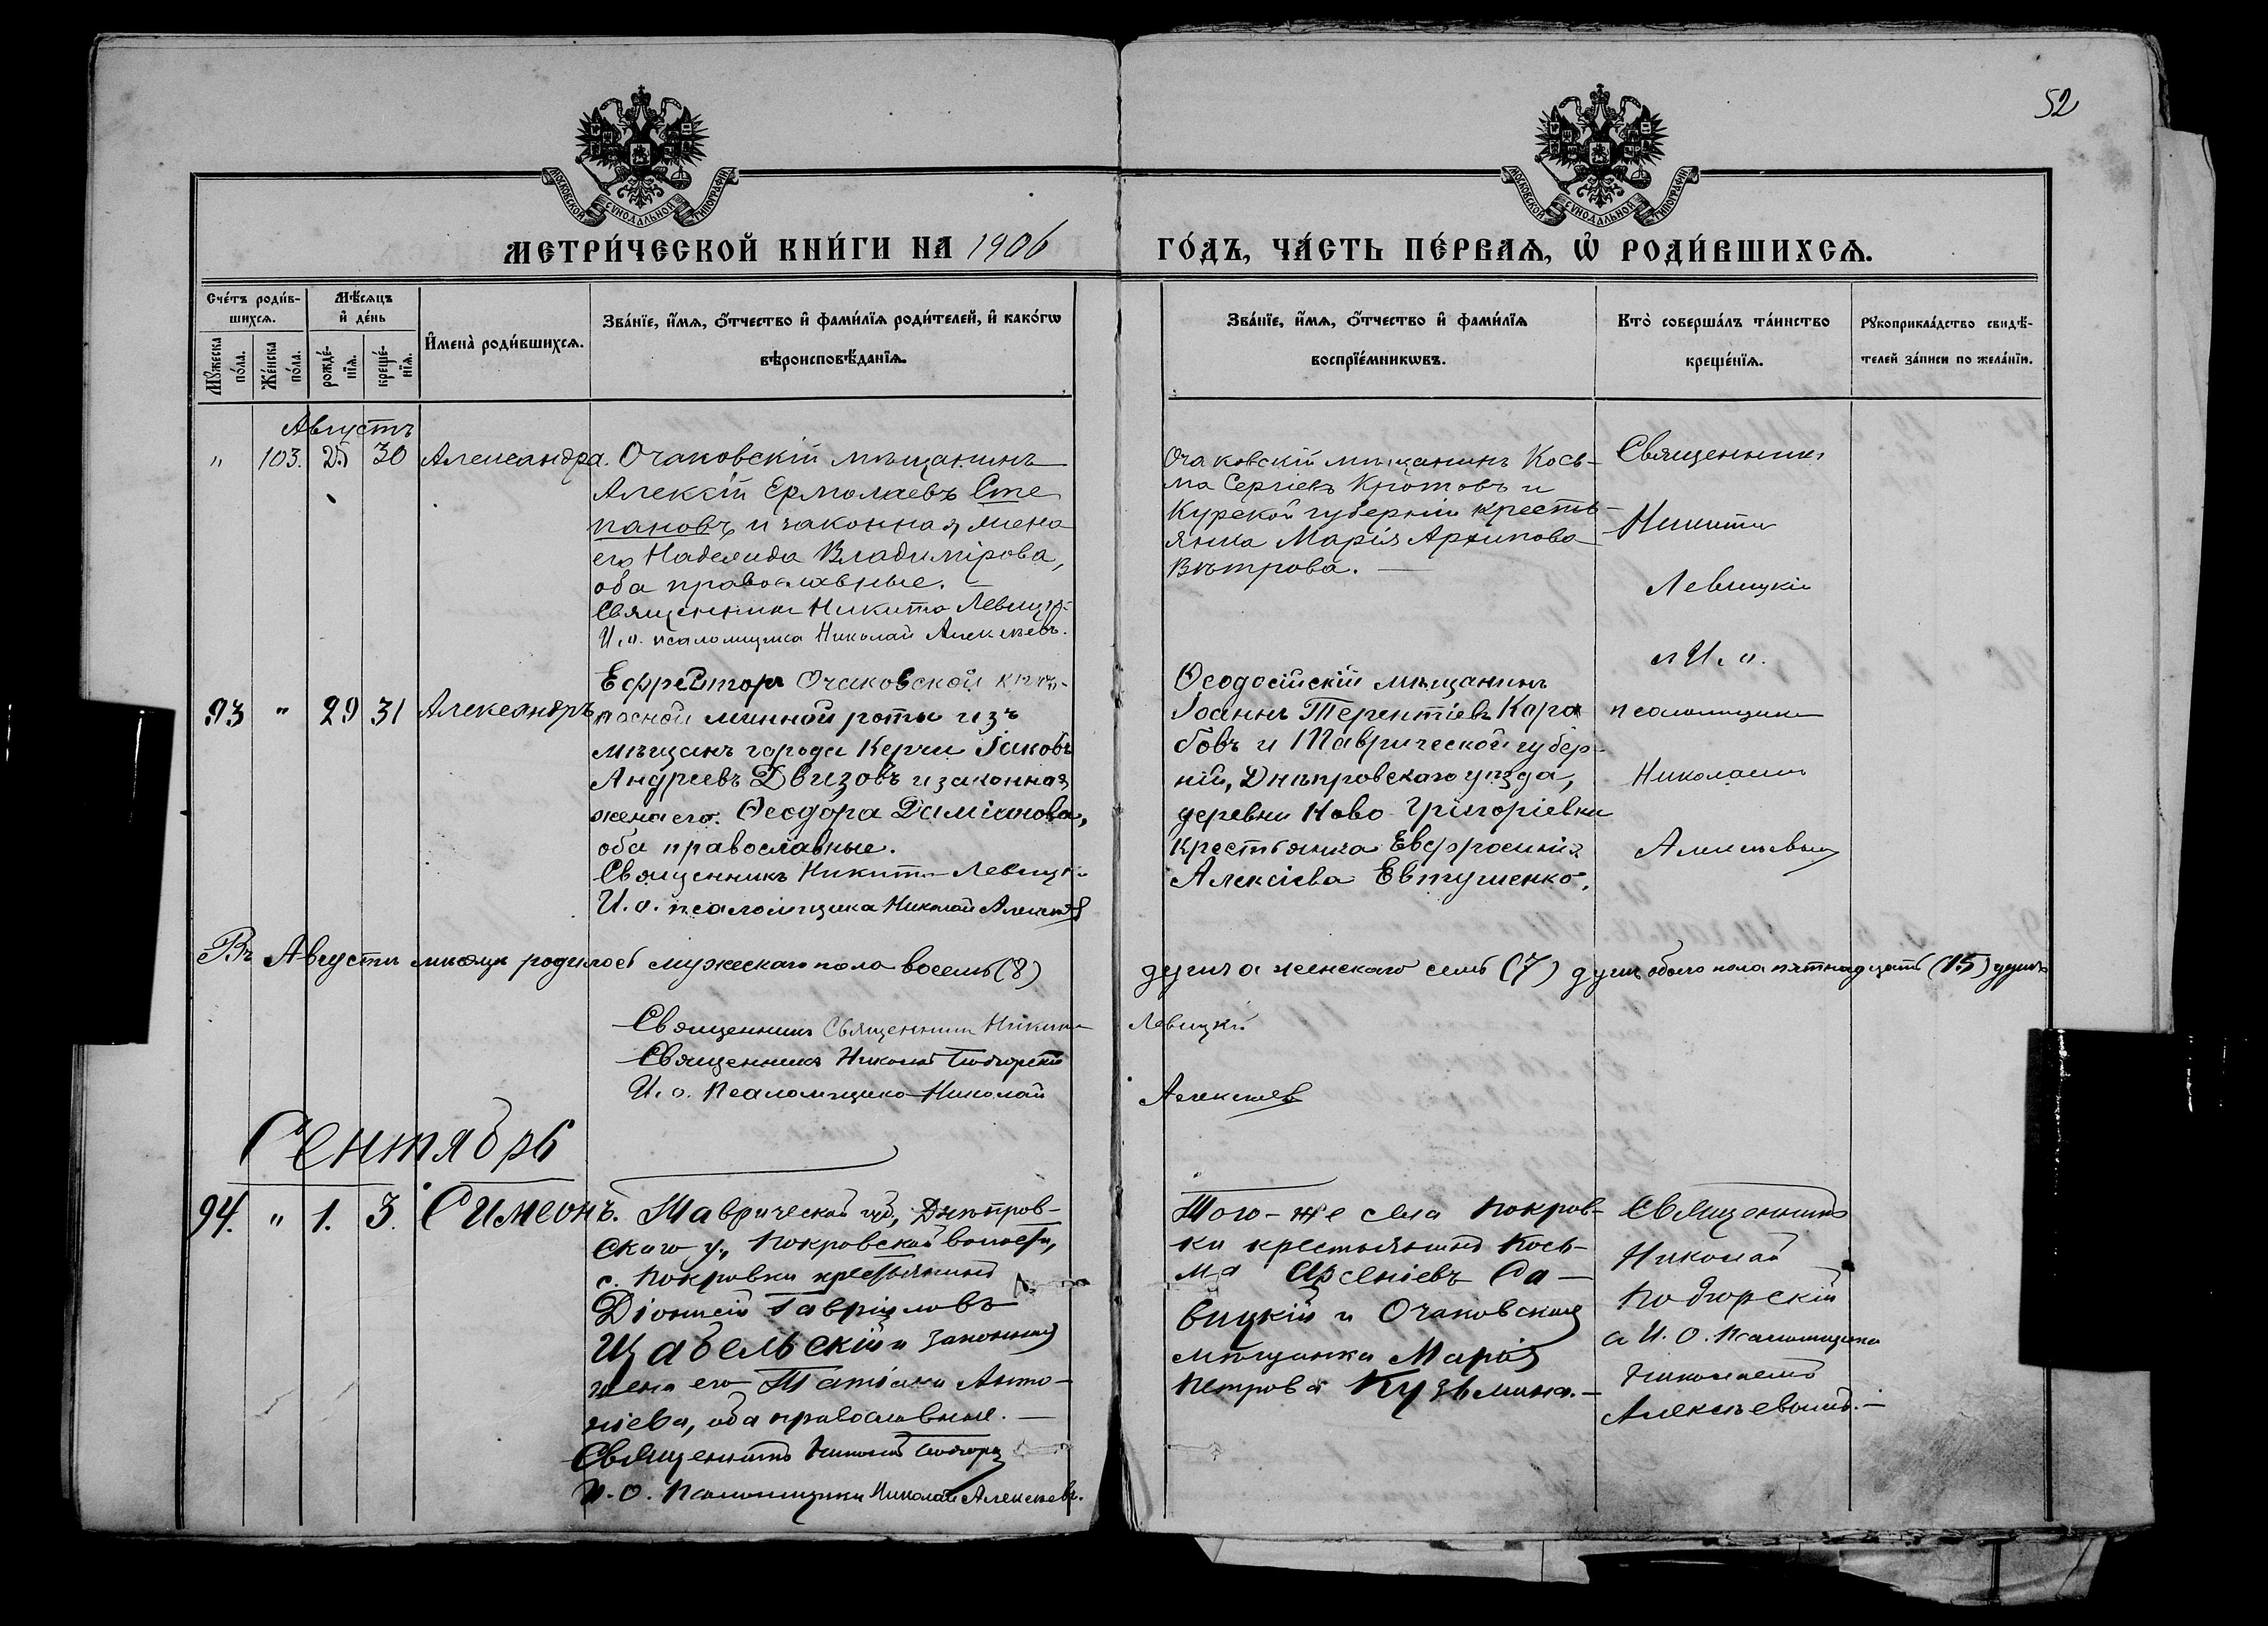 52
МОСКОВСКОЙ СѴНОДАЛЬНОЙ ТИПОГРАФІИ
МОСКОВСКОЙ СѴНОДАЛЬНОЙ ТИПОГРАФІИ
МЕТРИ́ЧЕСКОЙ КНИ́ГИ НА 1906
ГО́ДЪ, ЧА́СТЬ ПЕ́РВАѦ, Ѡ҆ РОДИ́ВШИХСѦ.
Сче́тъ роди́в-
шихсѧ.
Мꙋ́жеска
по́ла.
Же́нска
по́ла.
Мѣ́сѧцъ
и҆ де́нь
рожде́-
нїѧ.
креще́-
нїѧ.
И҆мена̀ роди́вшихсѧ.
Зва́нїе, и҆́мѧ, ѻ҆́тчество и҆ фами́лїѧ роди́телей, и҆ како́гѡ
вѣроисповѣ́данїѧ.
Зва́нїе, и҆́мѧ, ѻ҆́тчество и҆ фами́лїѧ
воспрїе́мникѡвъ.
Кто̀ соверша́лъ та́инство
креще́нїѧ.
Рꙋкоприкла́дство свидѣ́-
телей за́писи по жела́нїю.
Августъ
" 103. 25 30 Александра.
Очаковскій мѣщанинъ
Алексій Ермолаевъ Сте
пановъ и законная жена
его Надежда Владимірова,
оба православные. —
Священникъ Никита Левицкі
И. о. псаломщика Николай Алексѣевъ.
Очаковскій мѣщанинъ Кось-
ма Сергіевъ Кротовъ и
Курской губерніи кресть-
янка Марія Архипова
Вѣтрова. —
Священникъ
Никита
Левицкій
и И. о.
псаломщика
Николаемъ
Алексѣевымъ
93 " 29 31 Александръ
Ефрейторъ Очаковской крѣ-
постной минной роты изъ
мѣщанъ города Керчи Іаковъ
Андреевъ Двизовъ и законная
жена его Ѳеодора Даміанова,
оба православные.
Священникъ Никита Левицкі
И. о. псаломщика Николай Алексѣев
Ѳеодосійскій мѣщанинъ
Іоаннъ Терентіевъ Кара
бовъ и Таврической губер-
ніи, Днѣпровскаго уѣзда,
деревни Ново-Григоріевки
крестьянка Евфросинія
Алексіева Евтушенко.
Въ Августѣ мѣсяцѣ родилось мужескаго пола восемь (8)
душъ а женскаго семь (7) душъ обоего пола пятнадцать (15) душъ
Священникъ Священникъ Никита
Левицкій
Священникъ Николай Подгорскій
И. о. Псаломщика Николай
Алексѣев
Сентябрь
94. " 1. 3. Симеонъ.
Таврической губ., Днѣпров-
скаго у., Покровской волости,
с. Покровки крестьянинъ
Діонисій Гавріиловъ
Щабельскій и законная
жена его Татіана Анто-
ніева, оба православные. —
Священникъ Николай Подгорск
И. О. Псаломщика Николай Алексѣевъ.
Того-же села Покров-
ки крестьянинъ Кось-
ма Арсеніевъ Са-
вицкій и Очаковская
мѣщанка Марія
Петрова Кузьмина. —
Священникъ
Николай
Подгорскій
а И. О. Псаломщика
Николаемъ
Алексѣевымъ. —